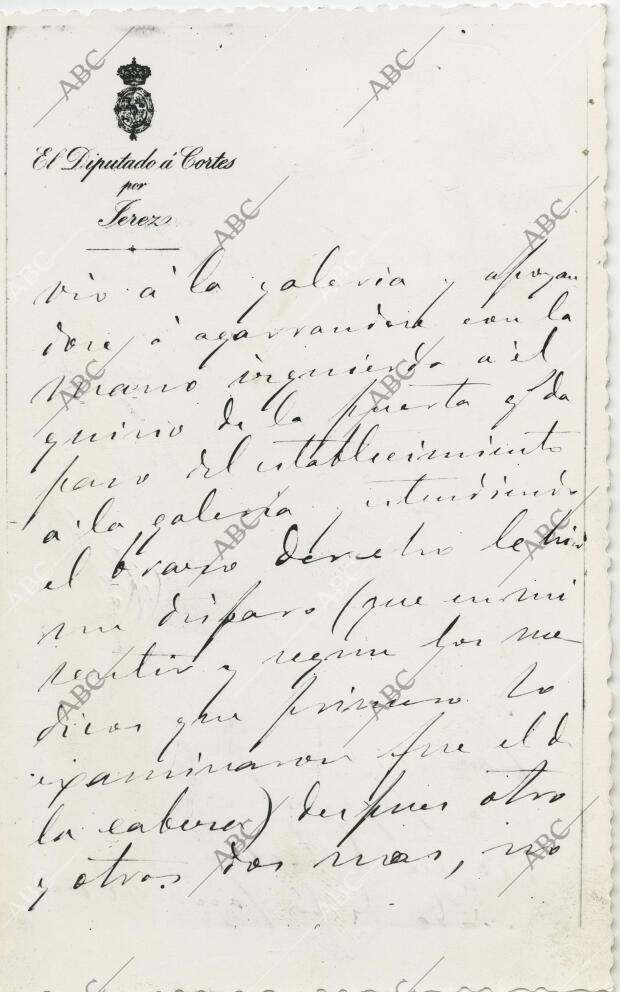 El Diputado á Cortes
por
Jerez
vio á la galeria y apoyan
dose, ó agarrandose con la
mano izquierda a el
quicio de la puerta q. da
paso del establecimiento
a la galeria, estendiendo
el brazo derecho le hizo
un disparo (que en mi
sentir y segun los me
dicos que primero lo
examinaron fue el d
la cabeza) despues otro
y otros dos mas, no
ABC